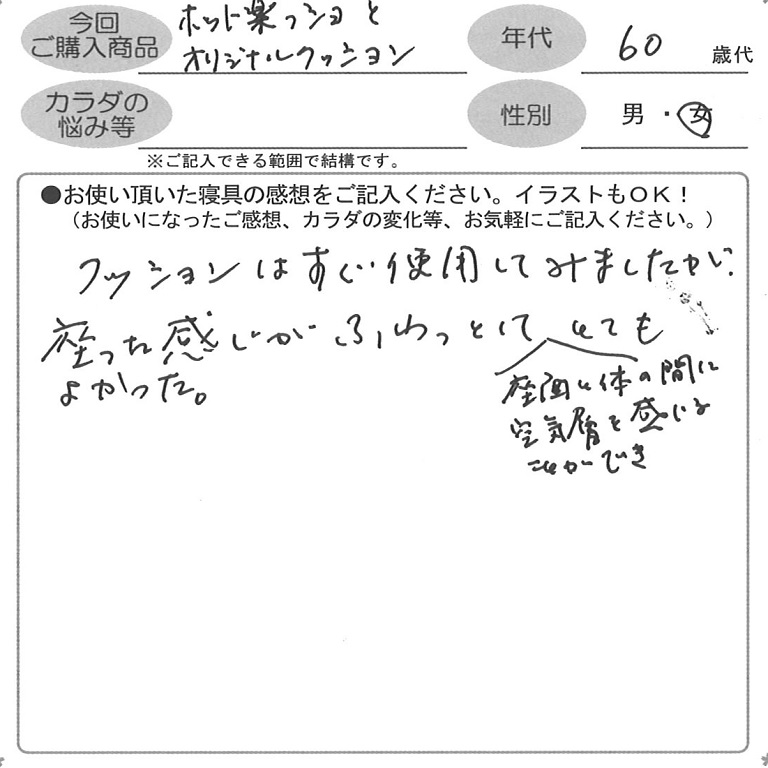 今回
ご購入商品
ホット楽っショと
オリジナルクッション
年代
60
歳代
カラダの
悩み等
性別
男・女
※ご記入できる範囲で結構です。
●お使い頂いた寝具の感想をご記入ください。イラストもOK!
(お使いになったご感想、カラダの変化等、お気軽にご記入ください。)
クッションはすぐ使用してみましたが、
座った感じがふわっとして とても
よかった。
座面と体の間に
空気層を感じる
ことができ